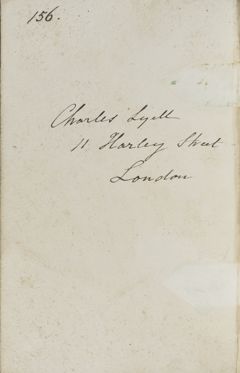 156.
Charles Lyell
11 Harley Street
London